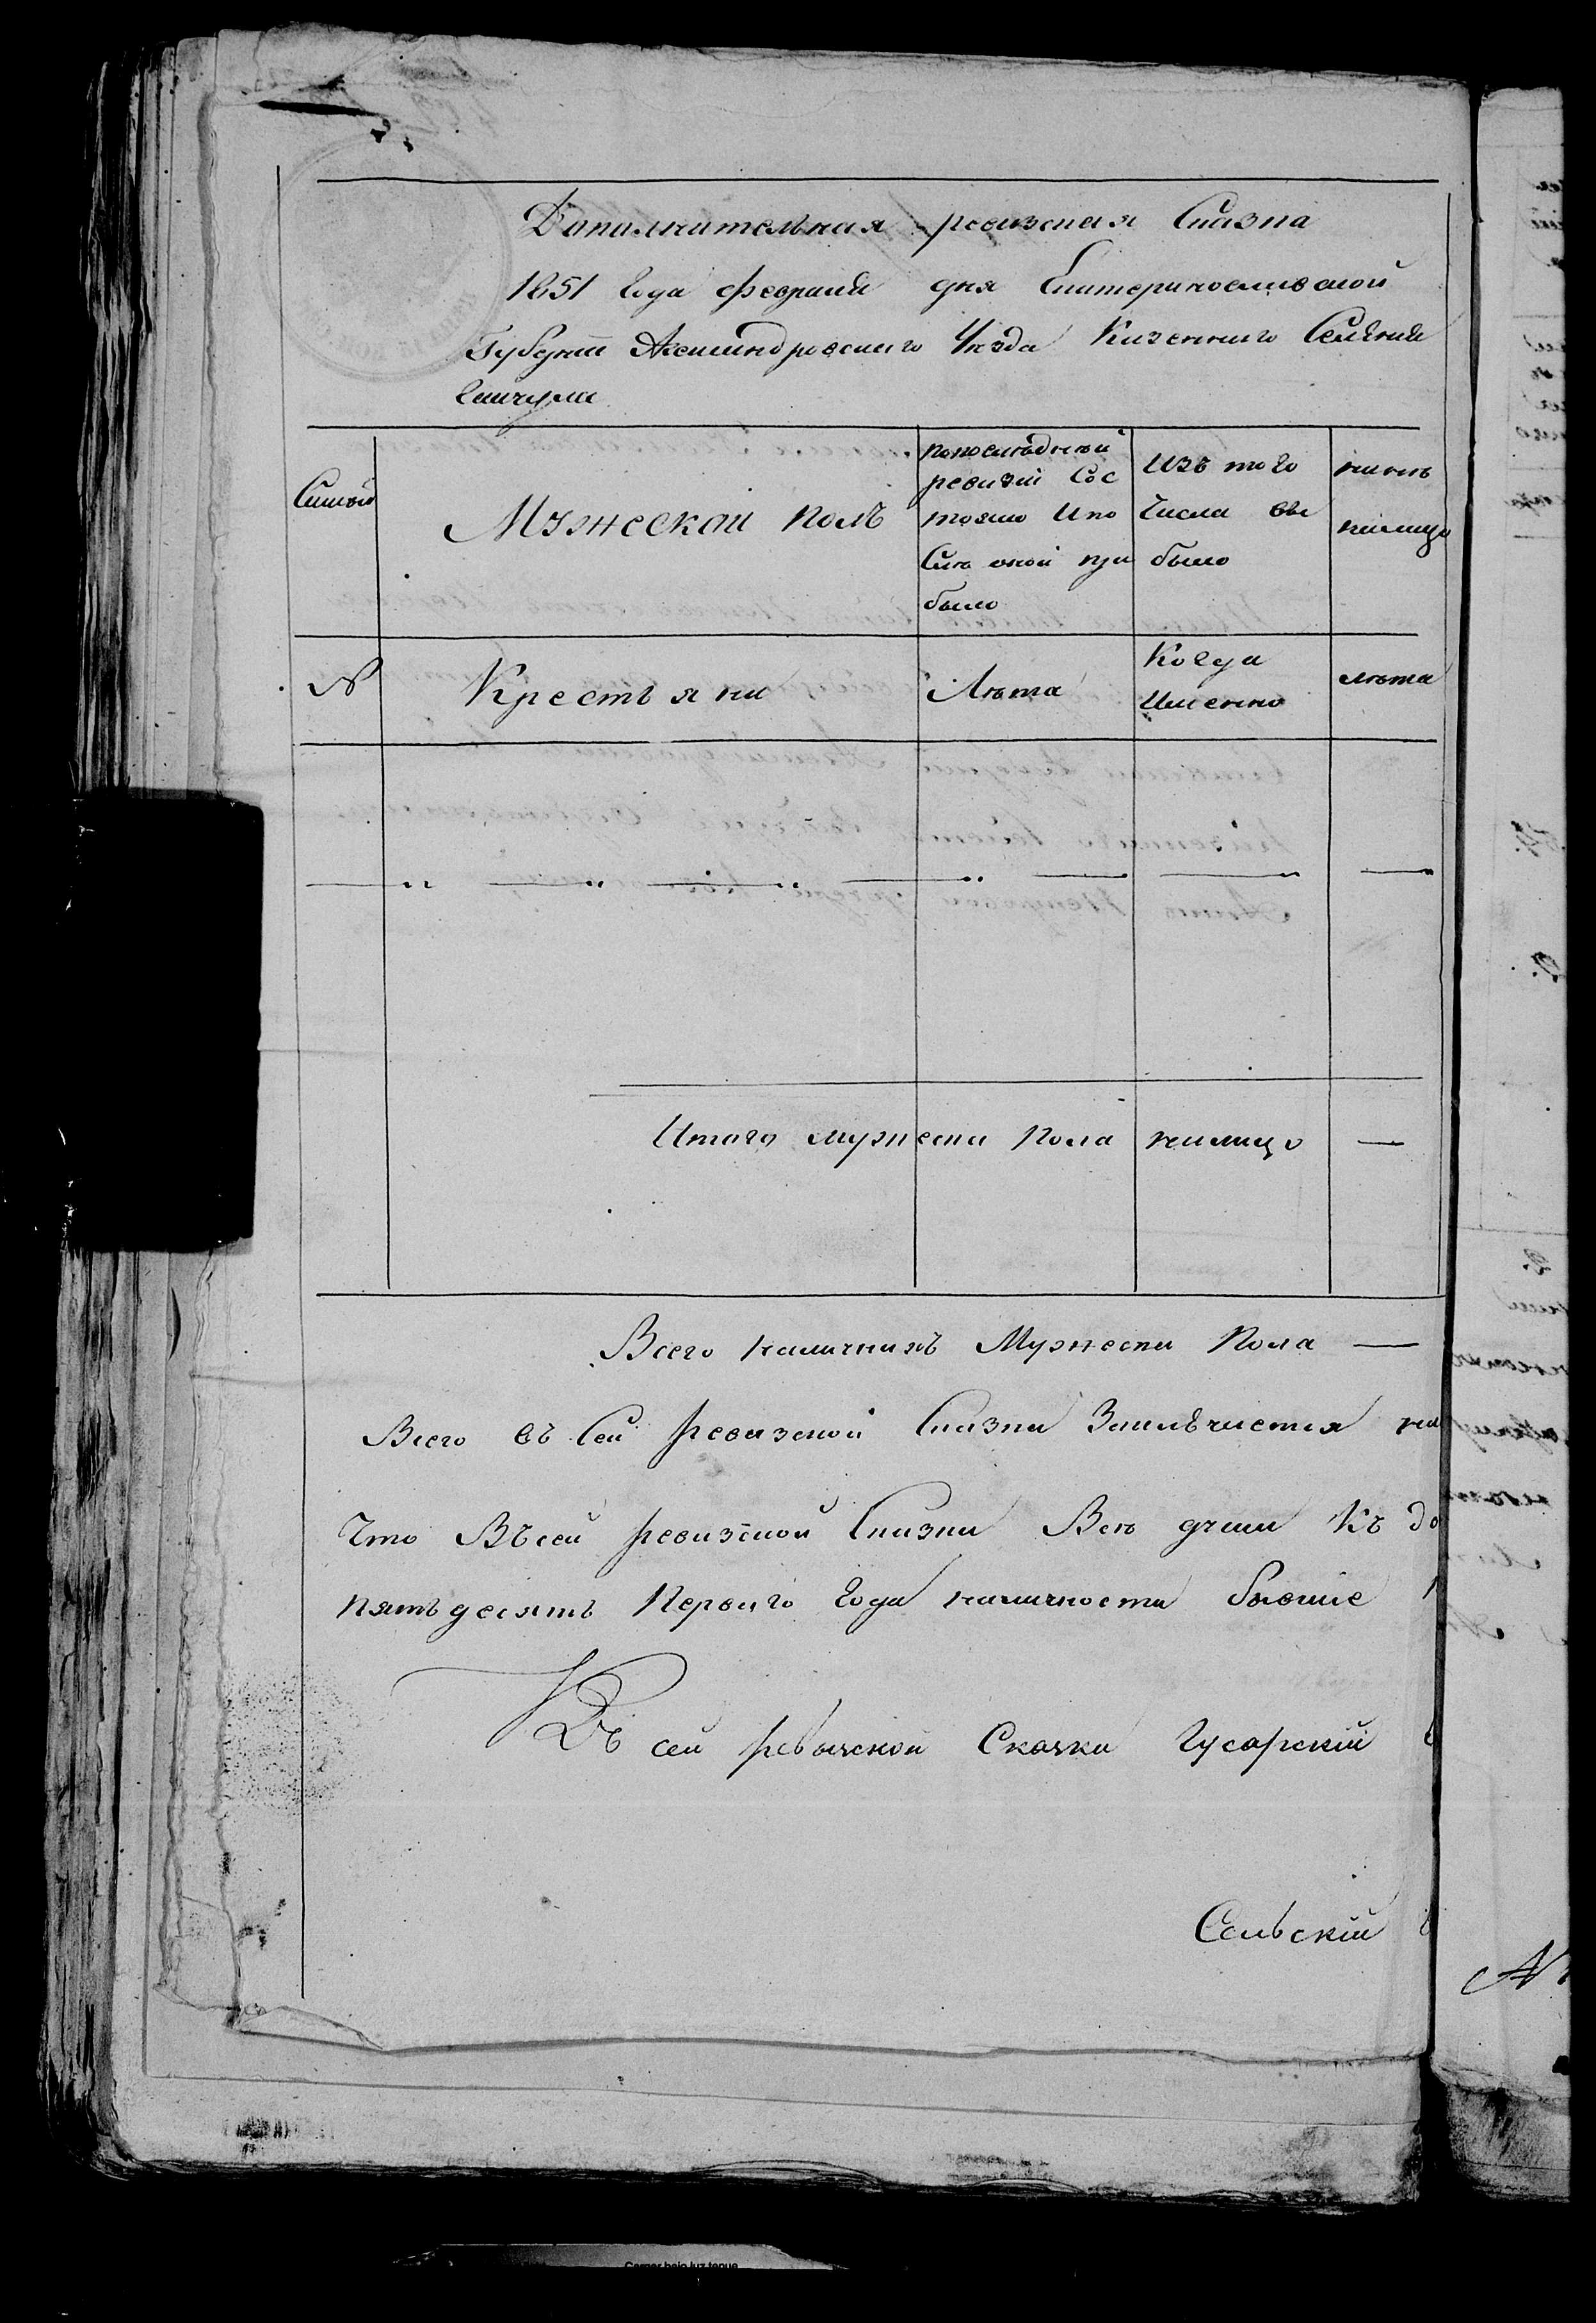 Дополнительная ревизская Сказка
1851 Года февраля дня Екатеринославской
Губернии Александровского Уезда Казенного Селения
Семьи
Мужеской полъ
попоследней
ревизии Сос
тояло Ипо
Сле оной при
было
Изъ того
Числа вы
было
ныне
налицо
№
Крестьяни
Лета
Когда
Именно
лета
Итого мужеска Пола налицо —
Всего наличнихъ Мужеска Пола —
Всего въ Сей ревизской Сказки Заключается на
Что Въсей ревизской Сказки Все души Къ до
пятьдесятъ Первого Года наличности бывшие
Къ сей ревызской Сказки Гусарский
Сельский